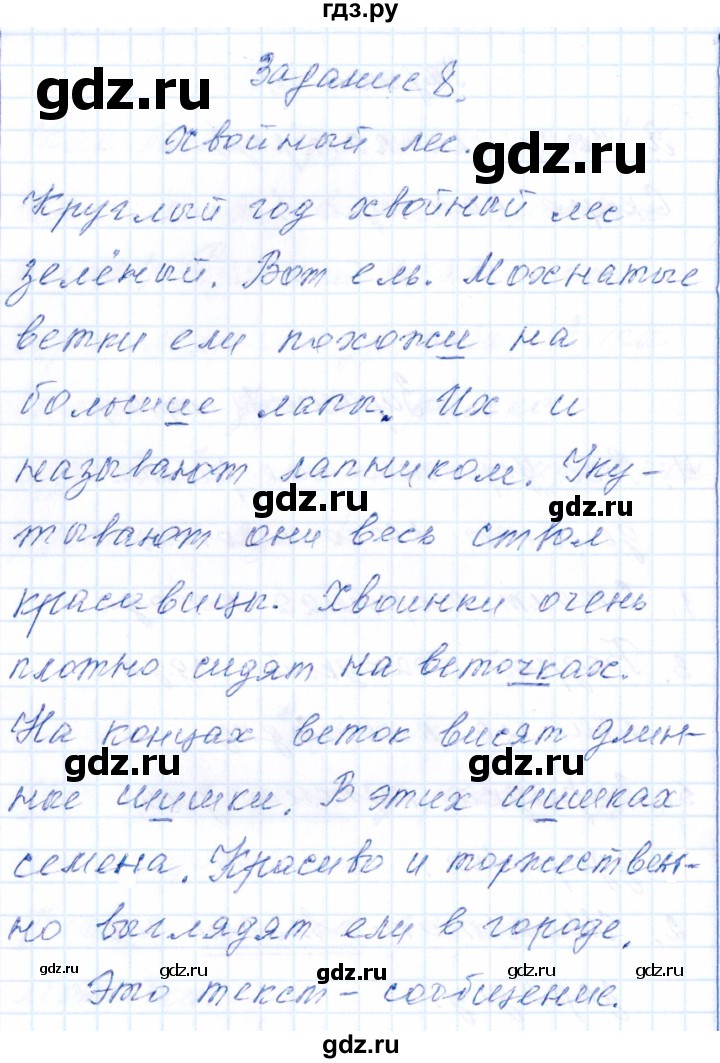 гдз.ру
Задание 8.
Хвойный лес.
Круглый год хвойный лес
зелёный. Вот ель. Мохнатые
ветки ели похожи на
большие лапы. Их и
называют лапником. Уку-
тывают они весь ствол
красавицы. Хвоинки очень
плотно сидят на веточках.
На концах веток висят длин-
ные шишки. В этих шишках
семена. Красиво и торжествен-
но выглядят ели в городе.
Это текст - сообщение.
gdz.ru
gdz.ru
gdz.ru
gdz.ru
gdz.ru
gdz.ru
gdz.ru
gdz.ru
gdz.ru
gdz.ru
gdz.ru